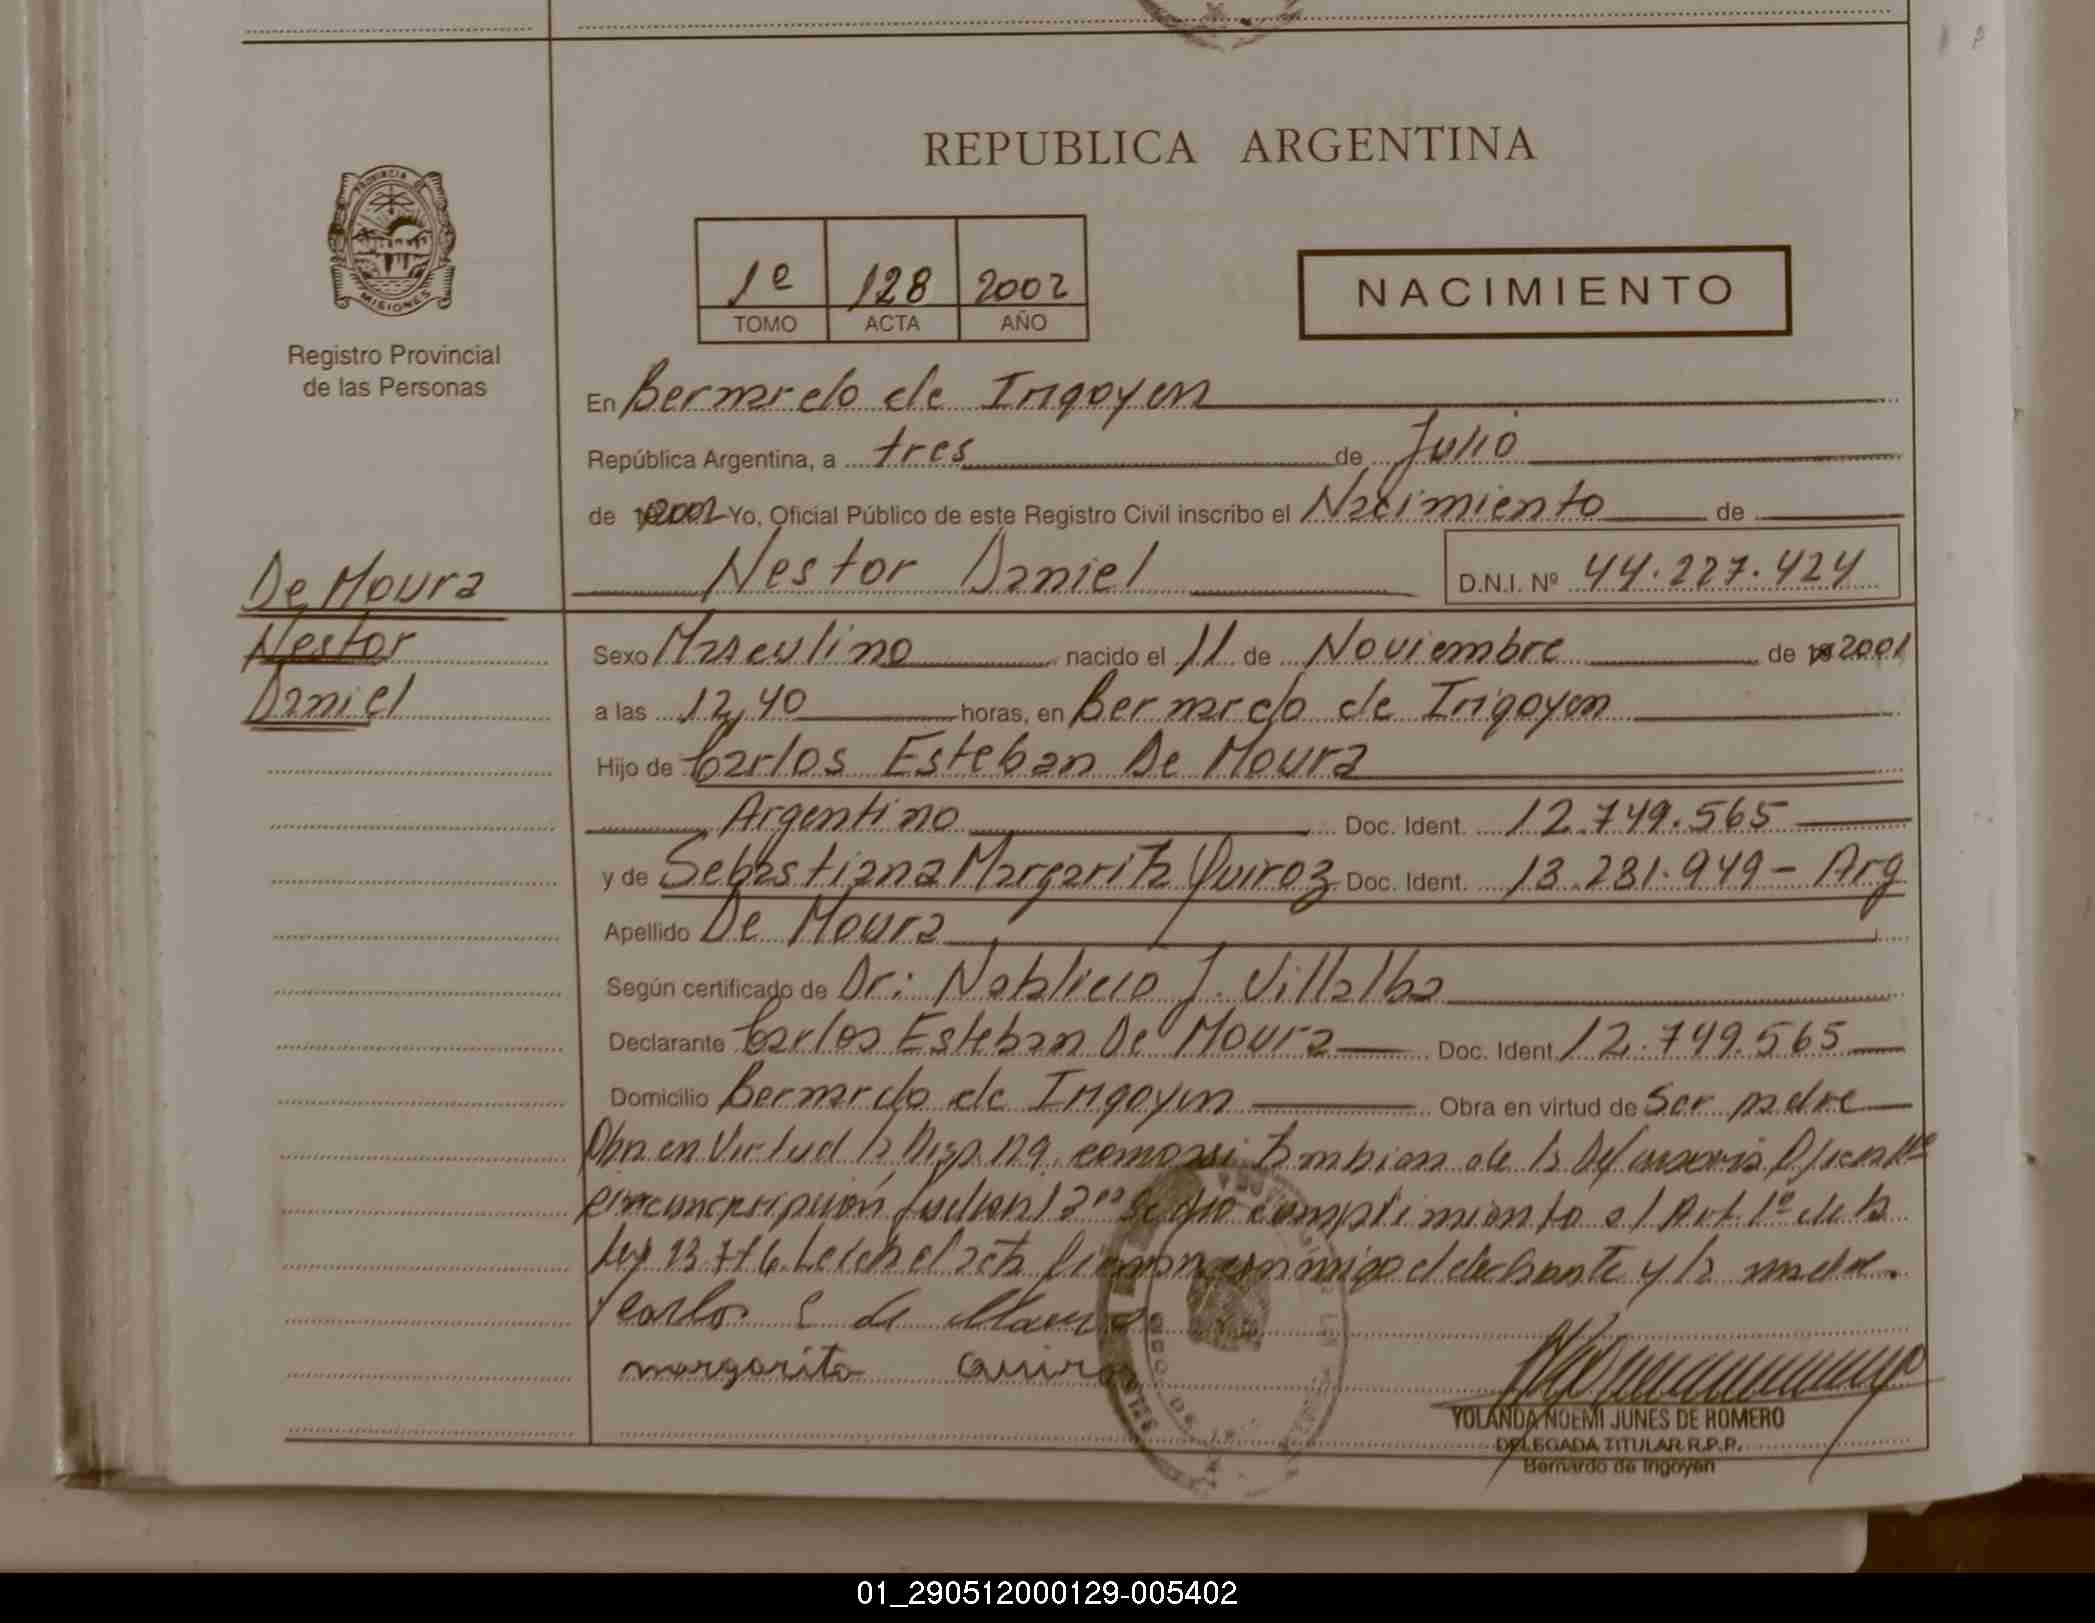 REPUBLICA ARGENTINA
PROVINCIA DE
MISIONES
Registro Provincial
de las Personas
1º 128 2002
TOMO ACTA AÑO
NACIMIENTO
En Bernardo de Irigoyen
República Argentina, a tres de Julio
de 2002 Yo, Oficial Público de este Registro Civil inscribo el Nacimiento de
Nestor Daniel D.N.I. Nº 44.227.424
De Moura
Nestor
Daniel
Sexo Masculino nacido el 11 de Noviembre de 2001
a las 12,40 horas, en Bernardo de Irigoyen
Hijo de Carlos Esteban De Moura
Argentino Doc. Ident. 12.749.565
y de Sebastiana Margarita Quiroz Doc. Ident. 13.281.949 - Arg
Apellido De Moura
Según certificado de Dr: J. Villalba
Declarante Carlos Esteban De Moura Doc. Ident 12.749.565
Domicilio Bernardo de Irigoyen Obra en virtud de Ser padre
Obra en Virtud la Disp. 129 como asi tambien de la
circunscripción Judicial 2da Se dio cumplimiento al Art 1º de la
Ley 13.746. Leida el acta firman conmigo el declarante y la madre.
Carlos E de Moura
margarita Quiroz
YOLANDA NOEMI JUNES DE ROMERO
DELEGADA TITULAR R.P.P.
Bernardo de Irigoyen
01_290512000129-005402